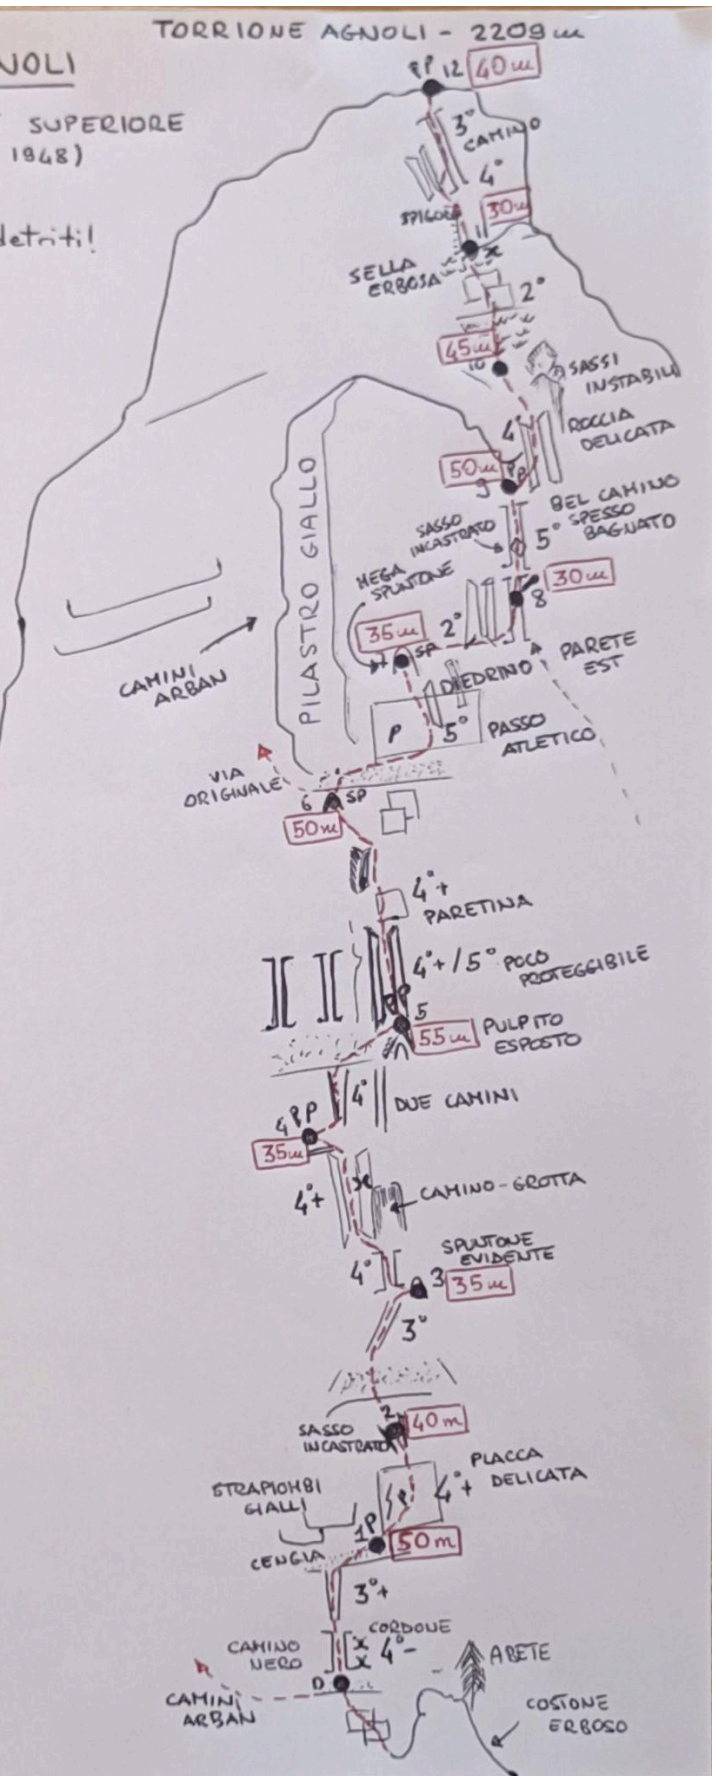 TORRIONE AGNOLI - 2209 m
NOLI
SUPERIORE
1948)
detriti!
PP 12 40 m
3°
CAMINO
4°
SPIGOLO
30m
11
x
SELLA
ERBOSA
2°
45m
10
SASSI
INSTABILI
4°
ROCCIA
DELICATA
50m
PP
9
BEL CAMINO
SPESSO
BAGNATO
SASSO
INCASTRATO
5°
MEGA
SPUNTONE
30m
8
35m
2°
7
SP
PILASTRO GIALLO
CAMINI
ARBAN
DIEDRINO
PARETE
EST
P
5°
PASSO
ATLETICO
VIA
ORIGINALE
6
SP
50m
4°+
PARETINA
4°+/5° POCO
PROTEGGIBILE
PP
5
55m
PULPITO
ESPOSTO
4°
DUE CAMINI
4 PP
35m
4°+
x
CAMINO-GROTTA
SPUNTONE
EVIDENTE
4°
3
35m
3°
2
40m
SASSO
INCASTRATO
PLACCA
DELICATA
STRAPIOMBI
GIALLI
P
4°+
1P
50m
CENGIA
3°+
CORDONE
CAMINO
NERO
x
x
4°-
ABETE
D
CAMINI
ARBAN
COSTONE
ERBOSO